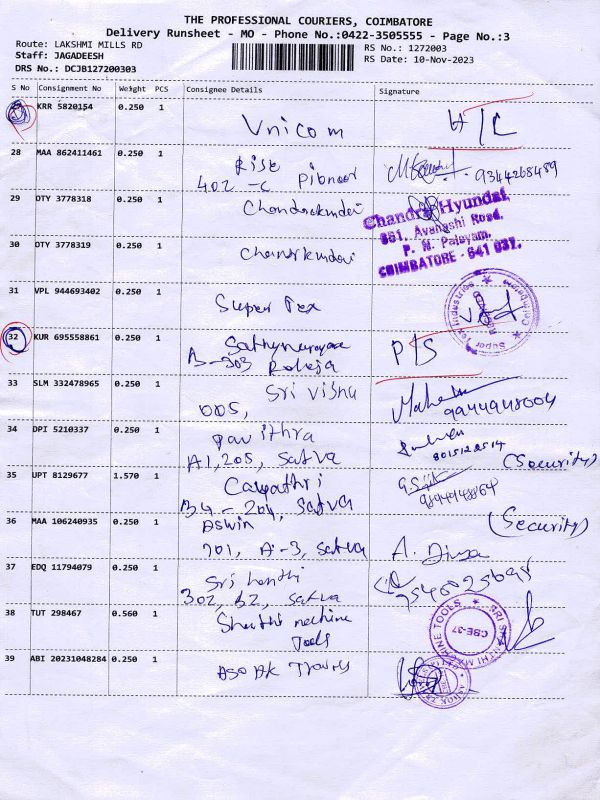 THE PROFESSIONAL COURIERS, COIMBATORE
Delivery Runsheet - MO - Phone No.:0422-3505555 - Page No.:3
Route: LAKSHMI MILLS RD
Staff: JAGADEESH
DRS No.: DCJB127200303
RS No.: 1272003
RS Date: 10-Nov-2023
S No Consignment No Weight PCS Consignee Details Signature
KRR 5820154 0.250 1 Unicom
28 MAA 862411461 0.250 1 Rise
402 -C 9344268489
29 DTY 3778318 0.250 1
Chandra Hyundai,
381, Avanashi Road,
P. N. Palayam,
COIMBATORE - 641 037.
30 DTY 3778319 0.250 1
31 VPL 944693402 0.250 1 Super Tex
Super Tex Industries Coimbatore
32 KUR 695558861 0.250 1 P/S
A-303 Raheja
33 SLM 332478965 0.250 1 Sri Vishnu
005,
34 DPI 5210337 0.250 1 Pavithra
A1, 205, Satva
35 UPT 8129677 1.570 1 Gayathri (Security)
B4 - 204, Satva
36 MAA 106240935 0.250 1 Aswin (Security)
701, A-3, Satva
37 EDQ 11794079 0.250 1 Sri
302, B2, Satva
38 TUT 298467 0.560 1 machine
Tools
SRI SHANTHI MACHINE TOOLS
CBE-37
39 ABI 20231048284 0.250 1